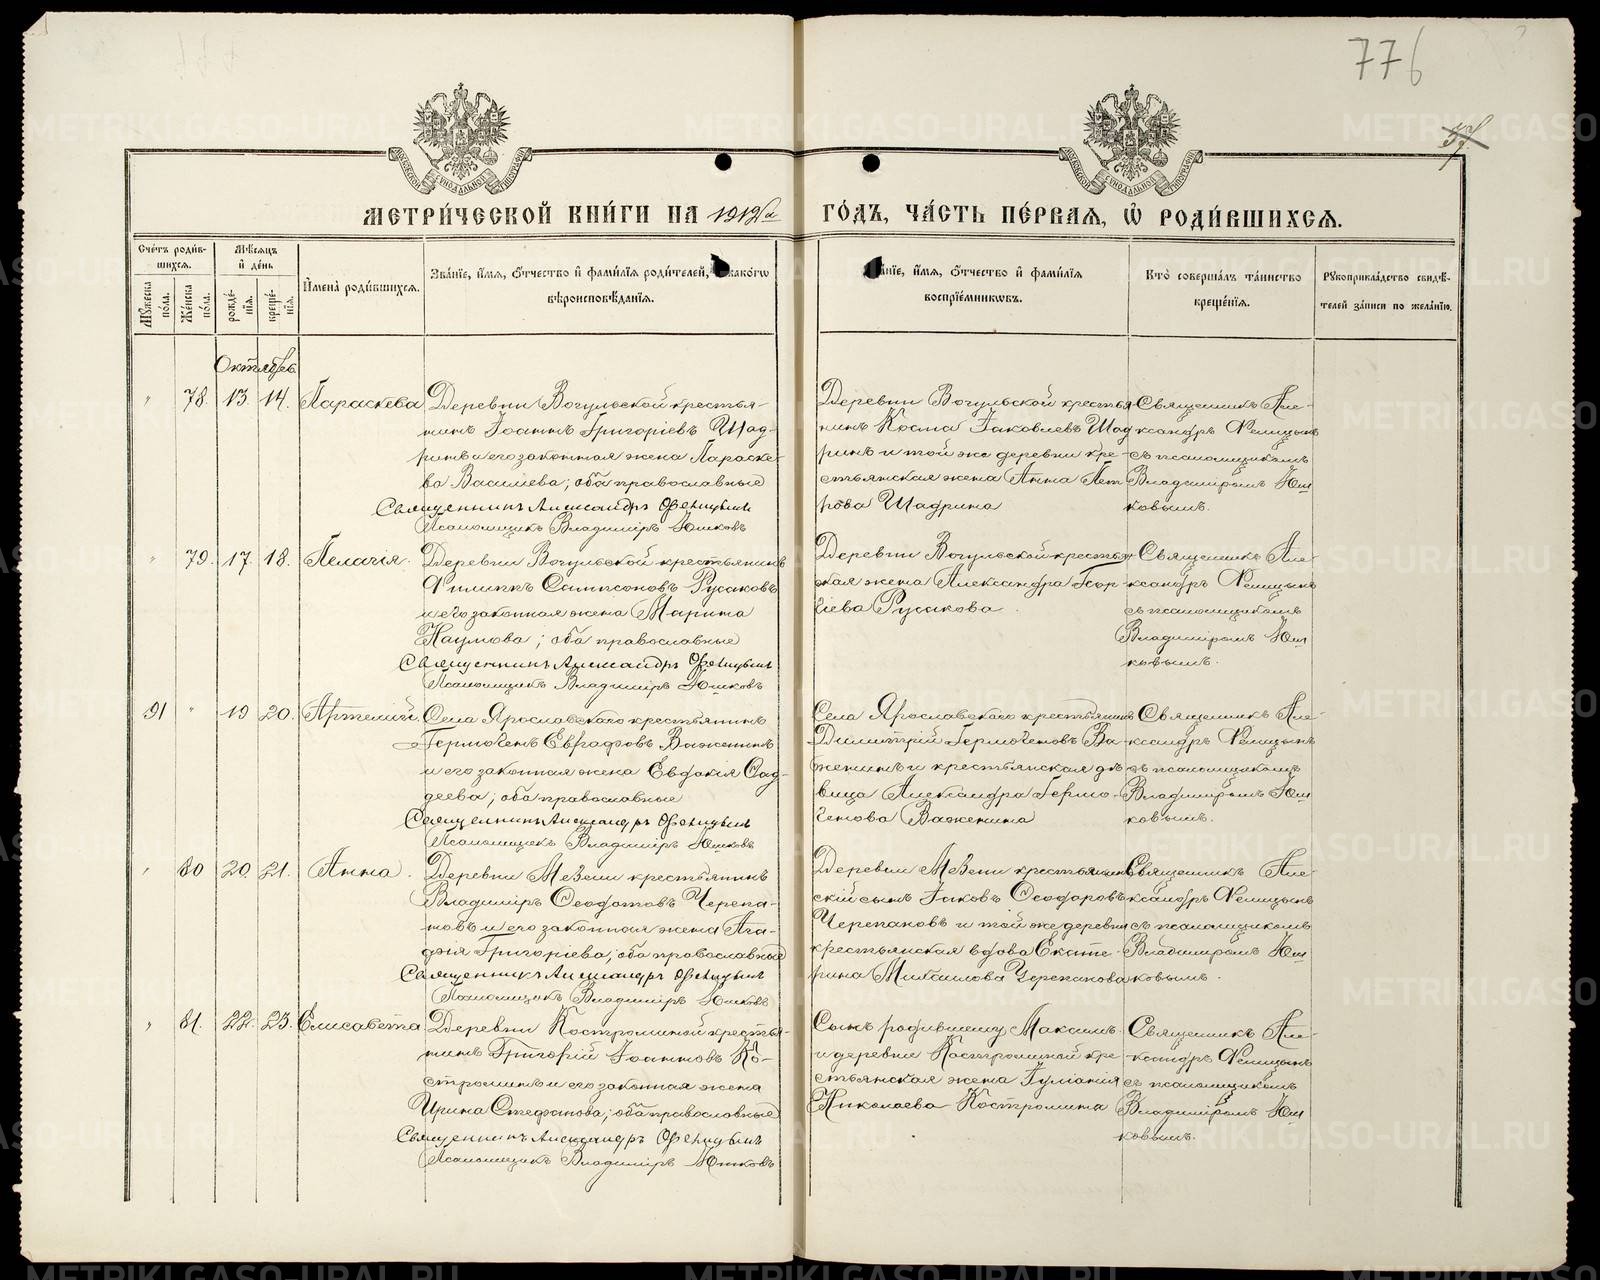 776
57
МЕТРИ́ЧЕСКОЙ КНИ́ГИ НА 1912й ГО́ДЪ, ЧА́СТЬ ПЕ́РВАЯ, Ѡ҆ РОДИ́ВШИХСЯ.
Сче́тъ роди́в-
шихся.
Мꙋ́жеска по́ла.
Же́нска по́ла.
Мѣ́сяцъ
и҆ де́нь
рожде́-
нїя.
креще́-
нїя.
И҆мена̀ роди́вшихся.
Зва́нїе, и҆́мя, ѻ҆́тчество и҆ фами́лїя роди́телей, и҆ како́гѡ
вѣроисповѣ́данїя.
Зва́нїе, и҆́мя, ѻ҆́тчество и҆ фами́лїя
воспрїе́мникѡвъ.
Кто̀ соверша́лъ та́инство
креще́нїя.
Рꙋкоприкла́дство свидѣ́-
телей за́писи по жела́нїю.
Октябрь
" 78. 13. 14. Параскева
Деревни Вогульской крестья-
нинъ Іоаннъ Григоріевъ Шад-
ринъ и его законная жена Параске-
ва Васильева; оба православные
Священникъ Александръ Фелицынъ
Псаломщикъ Владиміръ Юшковъ
Деревни Вогульской крестья-
нинъ Косма Іаковлевъ Шад
ринъ и той же деревни кре-
стьянская жена Анна Пет
рова Шадрина
Священникъ Але-
ксандръ Фелицынъ
съ псаломщикомъ
Владиміромъ Юш
ковымъ.
" 79. 17. 18. Пелагія.
Деревни Вогульской крестьянинъ
Филиппъ Сампсоновъ Русаковъ
и его законная жена Марина
Наумова; оба православные
Священникъ Александръ Фелицынъ
Псаломщикъ Владиміръ Юшковъ
Деревни Вогульской крестьян
ская жена Александра Геор-
гіева Русакова.
Священникъ Але-
ксандръ Фелицынъ
съ псаломщикомъ
Владиміромъ Юш
ковымъ.
91 " 19 20. Артемій.
Села Ярославскаго крестьянинъ
Гермогенъ Евграфовъ Важенинъ
и его законная жена Евдокія Фад-
деева; оба православные
Священникъ Александръ Фелицынъ
Псаломщикъ Владиміръ Юшковъ
Села Ярославскаго крестьянинъ
Димитрій Гермогеновъ Ва-
женинъ и крестьянская дѣ-
вица Александра Гермо-
генова Важенина
Священникъ Але-
ксандръ Фелицынъ
съ псаломщикомъ
Владиміромъ Юш
ковымъ.
" 80 20. 21. Анна.
Деревни Мезени крестьянинъ
Владиміръ Ѳеодотовъ Черепа-
новъ и его законная жена Ага-
фія Григоріева; оба православные
Священникъ Александръ Фелицынъ
Псаломщикъ Владиміръ Юшковъ
Деревни Мезени крестьян
скій сынъ Іаковъ Ѳеодоровъ
Черепановъ и той же деревни
крестьянская вдова Екате-
рина Михаилова Черепанова
Священникъ Але-
ксандръ Фелицынъ
съ псаломщикомъ
Владиміромъ Юш
ковымъ.
" 81. 22. 23. Елисавета
Деревни Костроминой крестья-
нинъ Григорій Іоанновъ Ко-
строминъ и его законная жена
Ирина Стефанова; оба православные
Священникъ Александръ Фелицынъ
Псаломщикъ Владиміръ Юшковъ
Сынъ родившему Максимъ
и деревни Костроминой кре-
стьянская жена Іуліанія
Николаева Костромина
Священникъ Але-
ксандръ Фелицынъ
съ псаломщикомъ
Владиміромъ Юш
ковымъ.